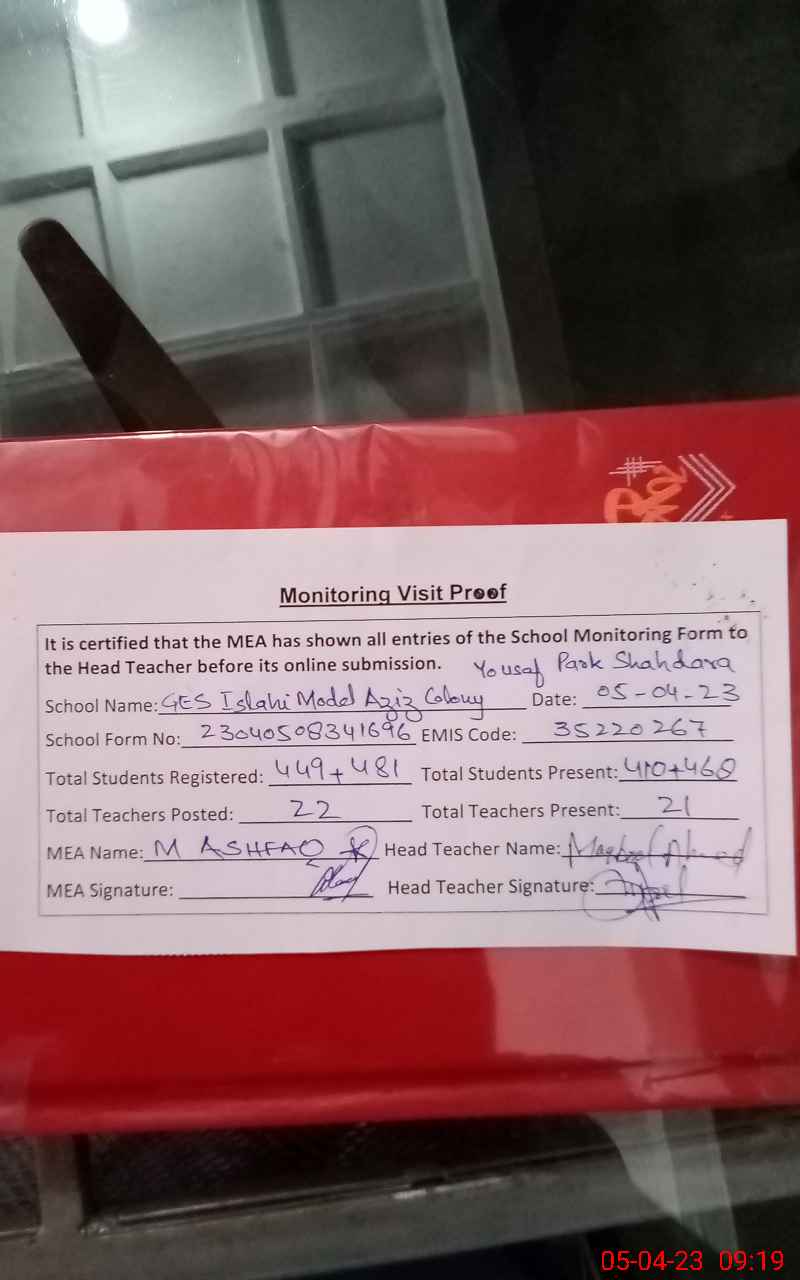 Monitoring Visit Proof
It is certified that the MEA has shown all entries of the School Monitoring Form to
the Head Teacher before its online submission.
Yousaf Park Shahdara
School Name: GES Islahi Model Aziz Colony Date: 05-04-23
School Form No: 23040508341696 EMIS Code: 35220267
Total Students Registered: 449+481 Total Students Present: 410+468
Total Teachers Posted: 22 Total Teachers Present: 21
MEA Name: M ASHFAQ Head Teacher Name: Maqbool Ahmed
MEA Signature: Head Teacher Signature:
05-04-23 09:19